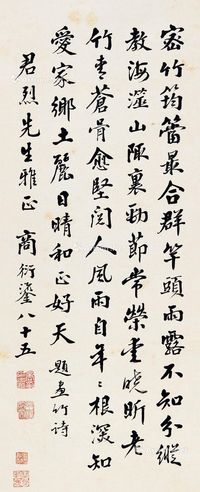 密竹筠䈽最合群竿頭雨露不知分縱
教海澨山陬裏勁節常榮堂曉昕老
竹青蒼骨愈堅閱人風雨自年〻根深知
愛家鄉土麗日晴和正好天 題畫竹詩
君烈先生雅正 商衍鎏八十五